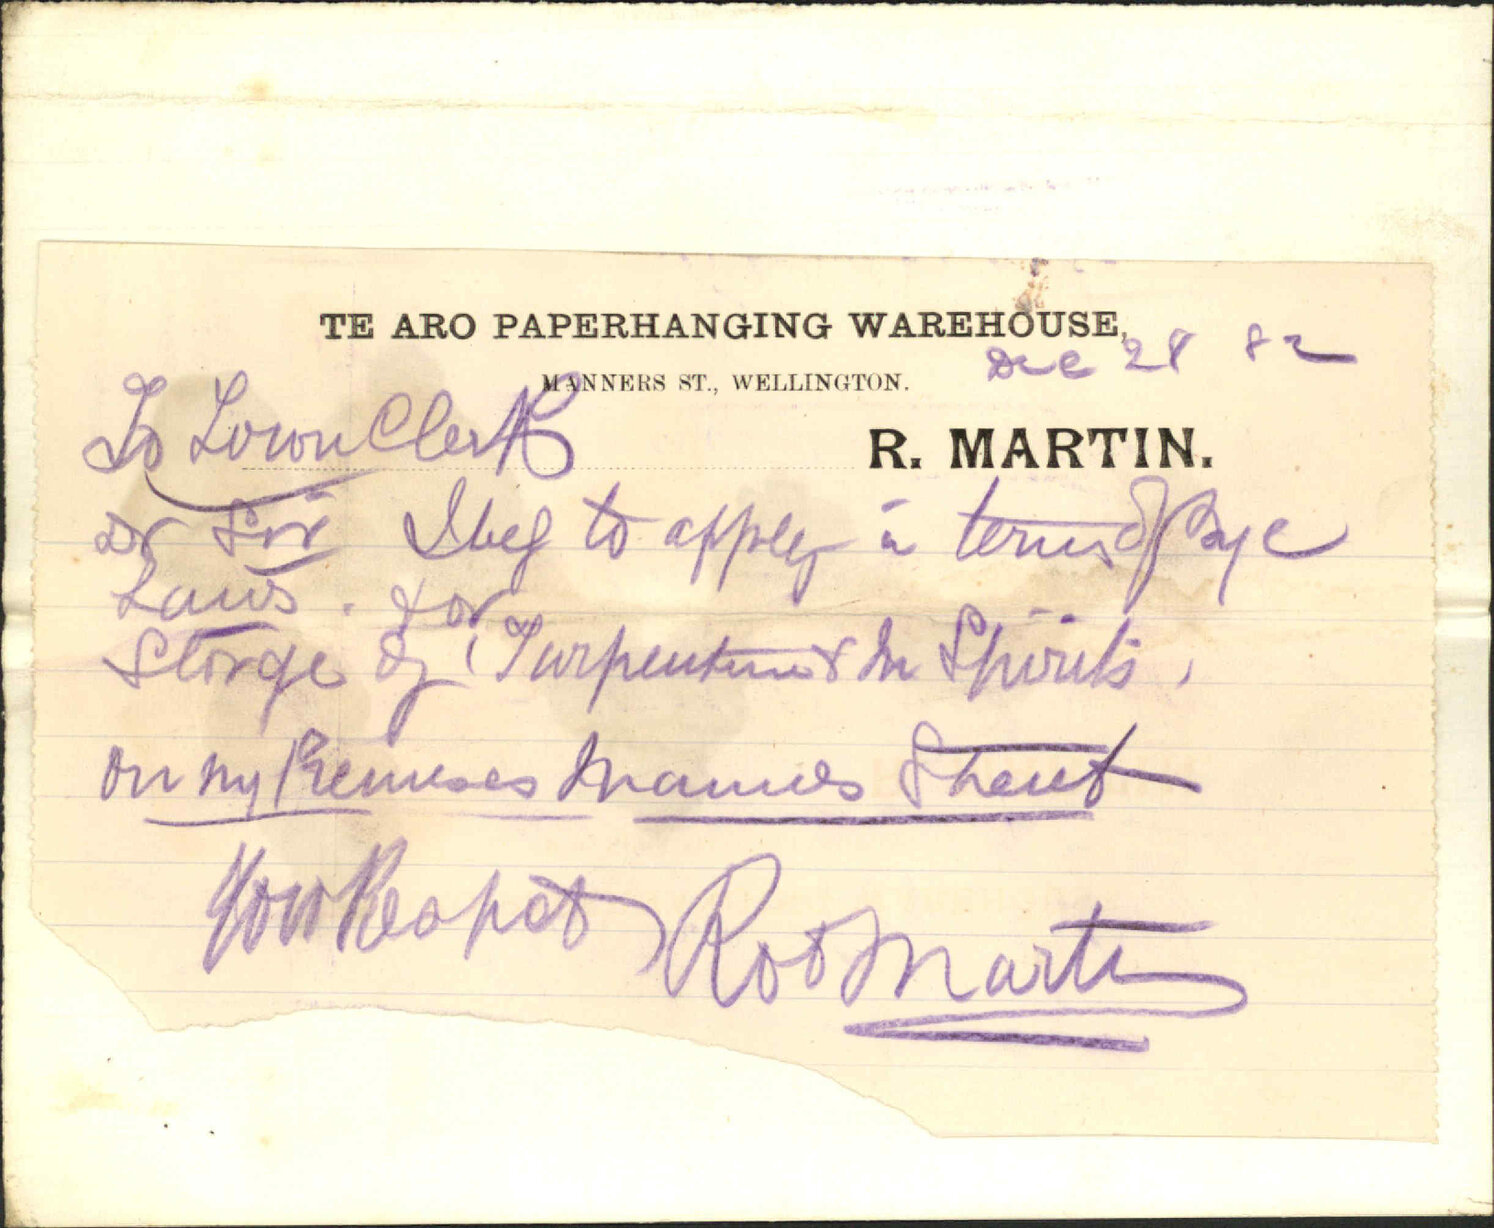 TE ARO PAPERHANGING WAREHOUSE,
Dec 28 82
MANNERS ST., WELLINGTON.
To Town Clerk
R. MARTIN.
Dr Sir I beg to apply in terms of Bye
Laws. for
Storge of Turpentine & M Spirits,
on my Premises Manners Street
Your Respct
Robt Martin